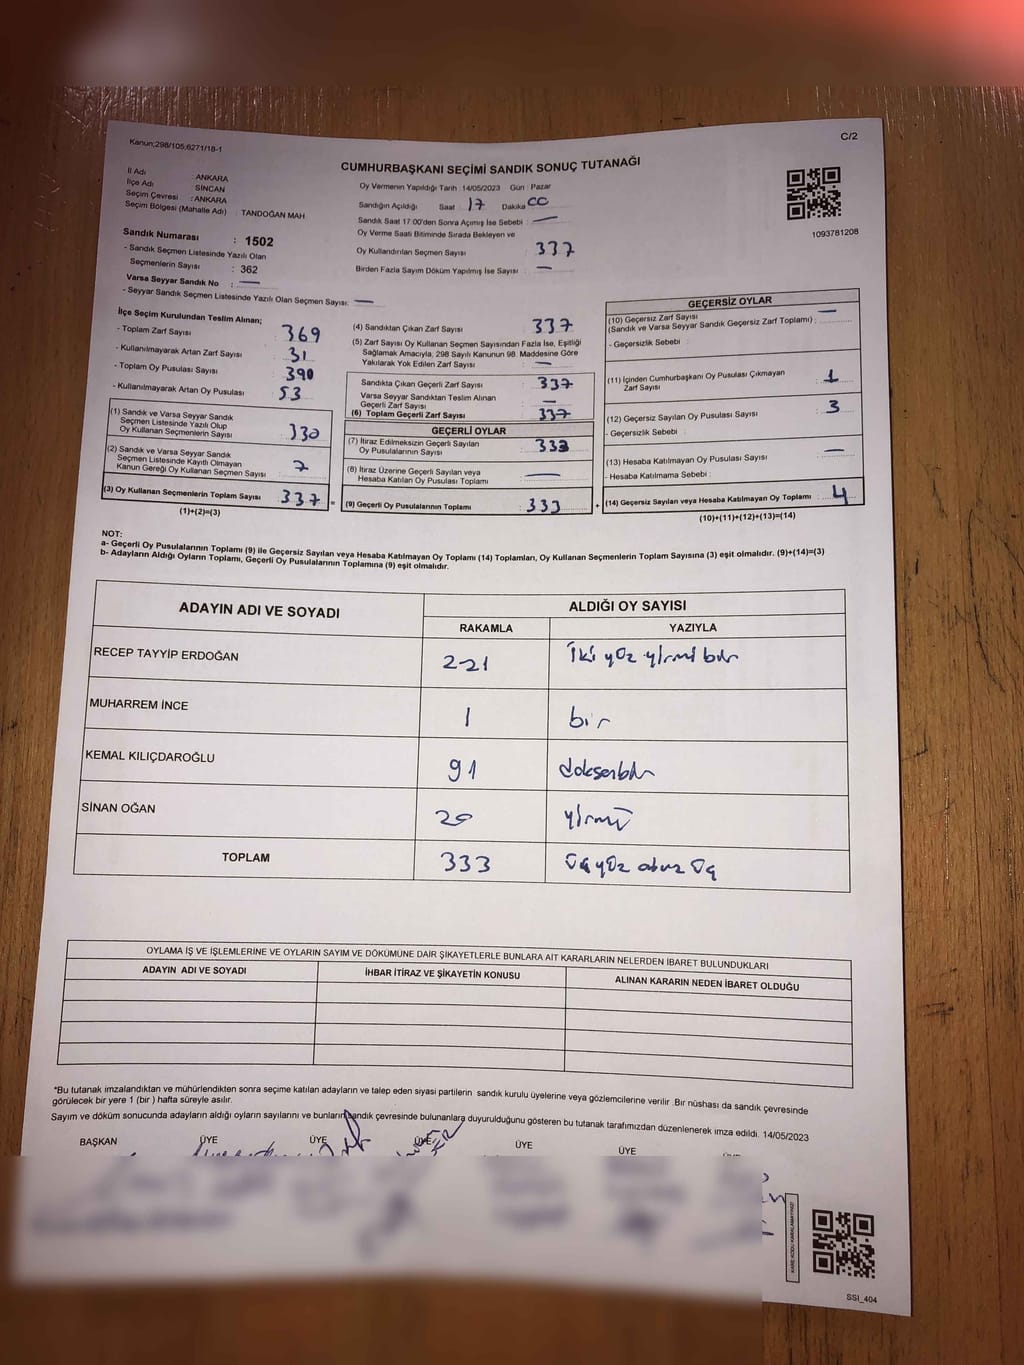 Kanun;298/105;6271/18-1
C/2
CUMHURBAŞKANI SEÇİMİ SANDIK SONUÇ TUTANAĞI
İl Adı : ANKARA
İlçe Adı : SİNCAN
Seçim Çevresi : ANKARA
Seçim Bölgesi (Mahalle Adı) : TANDOĞAN MAH
Oy Vermenin Yapıldığı Tarih : 14/05/2023 Gün : Pazar
Sandığın Açıldığı Saat : 17 Dakika 00
Sandık Saat 17:00'den Sonra Açımış İse Sebebi : —
Oy Verme Saati Bitiminde Sırada Bekleyen ve
Oy Kullandırılan Seçmen Sayısı : 337
Birden Fazla Sayım Döküm Yapılmış İse Sayısı : —
1093781208
Sandık Numarası : 1502
- Sandık Seçmen Listesinde Yazılı Olan
Seçmenlerin Sayısı : 362
Varsa Seyyar Sandık No : —
- Seyyar Sandık Seçmen Listesinde Yazılı Olan Seçmen Sayısı: —
İlçe Seçim Kurulundan Teslim Alınan;
- Toplam Zarf Sayısı : 369
- Kullanılmayarak Artan Zarf Sayısı : 31
- Toplam Oy Pusulası Sayısı : 390
- Kullanılmayarak Artan Oy Pusulası : 53
(1) Sandık ve Varsa Seyyar Sandık
Seçmen Listesinde Yazılı Olup
Oy Kullanan Seçmenlerin Sayısı : 330
(2) Sandık ve Varsa Seyyar Sandık
Seçmen Listesinde Kayıtlı Olmayan
Kanun Gereği Oy Kullanan Seçmen Sayısı : 7
(3) Oy Kullanan Seçmenlerin Toplam Sayısı : 337
(1)+(2)=(3)
(4) Sandıktan Çıkan Zarf Sayısı : 337
(5) Zarf Sayısı Oy Kullanan Seçmen Sayısından Fazla İse, Eşitliği
Sağlamak Amacıyla, 298 Sayılı Kanunun 98. Maddesine Göre
Yakılarak Yok Edilen Zarf Sayısı : —
Sandıkta Çıkan Geçerli Zarf Sayısı : 337
Varsa Seyyar Sandıktan Teslim Alınan
Geçerli Zarf Sayısı : —
(6) Toplam Geçerli Zarf Sayısı : 337
GEÇERLİ OYLAR
(7) İtiraz Edilmeksizin Geçerli Sayılan
Oy Pusulalarının Sayısı : 333
(8) İtiraz Üzerine Geçerli Sayılan veya
Hesaba Katılan Oy Pusulası Toplamı : —
(9) Geçerli Oy Pusulalarının Toplamı : 333
GEÇERSİZ OYLAR
(10) Geçersiz Zarf Sayısı
(Sandık ve Varsa Seyyar Sandık Geçersiz Zarf Toplamı) : —
- Geçersizlik Sebebi :
(11) İçinden Cumhurbaşkanı Oy Pusulası Çıkmayan
Zarf Sayısı : 1
(12) Geçersiz Sayılan Oy Pusulası Sayısı : 3
- Geçersizlik Sebebi :
(13) Hesaba Katılmayan Oy Pusulası Sayısı : —
- Hesaba Katılmama Sebebi :
(14) Geçersiz Sayılan veya Hesaba Katılmayan Oy Toplamı : 4
(10)+(11)+(12)+(13)=(14)
NOT:
a- Geçerli Oy Pusulalarının Toplamı (9) ile Geçersiz Sayılan veya Hesaba Katılmayan Oy Toplamı (14) Toplamları, Oy Kullanan Seçmenlerin Toplam Sayısına (3) eşit olmalıdır. (9)+(14)=(3)
b- Adayların Aldığı Oyların Toplamı, Geçerli Oy Pusulalarının Toplamına (9) eşit olmalıdır.
ADAYIN ADI VE SOYADI ALDIĞI OY SAYISI
RAKAMLA YAZIYLA
RECEP TAYYİP ERDOĞAN 221 iki yüz yirmi bir
MUHARREM İNCE 1 bir
KEMAL KILIÇDAROĞLU 91 doksanbir
SİNAN OĞAN 20 yirmi
TOPLAM 333 üç yüz otuz üç
OYLAMA İŞ VE İŞLEMLERİNE VE OYLARIN SAYIM VE DÖKÜMÜNE DAİR ŞİKAYETLERLE BUNLARA AİT KARARLARIN NELERDEN İBARET BULUNDUKLARI
ADAYIN ADI VE SOYADI İHBAR İTİRAZ VE ŞİKAYETİN KONUSU ALINAN KARARIN NEDEN İBARET OLDUĞU
*Bu tutanak imzalandıktan ve mühürlendikten sonra seçime katılan adayların ve talep eden siyasi partilerin sandık kurulu üyelerine veya gözlemcilerine verilir. Bir nüshası da sandık çevresinde
görülecek bir yere 1 (bir ) hafta süreyle asılır.
Sayım ve döküm sonucunda adayların aldığı oyların sayılarını ve bunların sandık çevresinde bulunanlara duyurulduğunu gösteren bu tutanak tarafımızdan düzenlenerek imza edildi. 14/05/2023
BAŞKAN ÜYE ÜYE ÜYE ÜYE ÜYE
KARE KODU KARALAMAYINIZ!
SSI_404